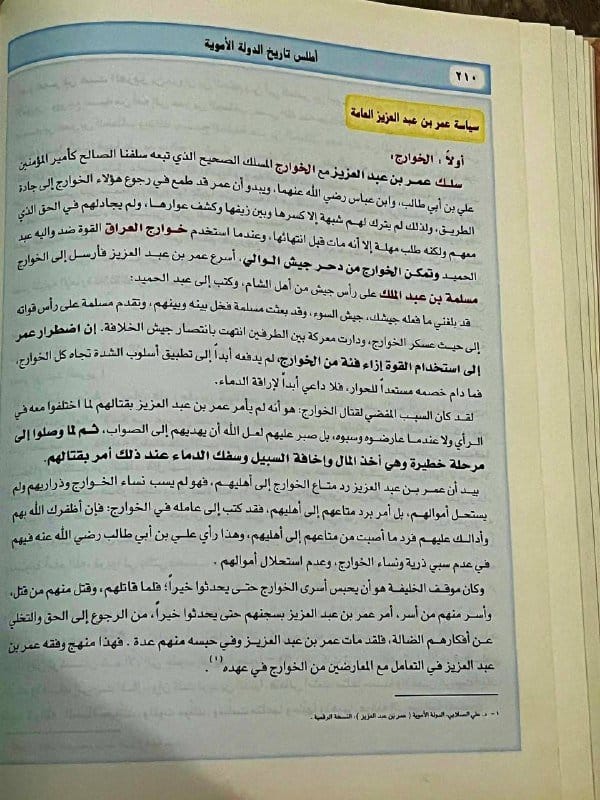 أطلس تاريخ الدولة الأموية
٢١٠
سياسة عمر بن عبد العزيز العامة
أولاً : الخوارج:
سلك عمر بن عبد العزيز مع الخوارج المسلك الصحيح الذي تبعه سلفنا الصالح كأمير المؤمنين
علي بن أبي طالب، وابن عباس رضي الله عنهما. ويبدو أن عمر قد طمع في رجوع هؤلاء الخوارج إلى جادة
الطريق، ولذلك لم يترك لهم شبهة إلا كسرها وبين زيفها وكشف عوارها، ولم يجادلهم في الحق الذي
معهم ولكنه طلب مهلة إلا أنه مات قبل انتهائها، وعندما استخدم خوارج العراق القوة ضد واليه عبد
الحميد وتمكن الخوارج من دحر جيش الوالي، أسرع عمر بن عبد العزيز فأرسل إلى الخوارج
مسلمة بن عبد الملك على رأس جيش من أهل الشام، وكتب إلى عبد الحميد:
قد بلغني ما فعله جيشك، جيش السوء، وقد بعثت مسلمة فخل بينه وبينهم، وتقدم مسلمة على رأس قواته
إلى حيث عسكر الخوارج، ودارت معركة بين الطرفين انتهت بانتصار جيش الخلافة. إن اضطرار عمر
إلى استخدام القوة إزاء فئة من الخوارج، لم يدفعه أبداً إلى تطبيق أسلوب الشدة تجاه كل الخوارج،
فما دام خصمه مستعداً للحوار، فلا داعي أبداً لإراقة الدماء.
لقد كان السبب المفضي لقتال الخوارج: هو أنه لم يأمر عمر بن عبد العزيز بقتالهم لما اختلفوا معه في
الرأي ولا عندما عارضوه وسبوه، بل صبر عليهم لعل الله أن يهديهم إلى الصواب، ثم لما وصلوا إلى
مرحلة خطيرة وهي أخذ المال وإخافة السبيل وسفك الدماء عند ذلك أمر بقتالهم.
بيد أن عمر بن عبد العزيز رد متاع الخوارج إلى أهليهم، فهو لم يسب نساء الخوارج وذراريهم ولم
يستحل أموالهم، بل أمر برد متاعهم إلى أهليهم، فقد كتب إلى عامله في الخوارج: فإن أظفرك الله بهم
وأدالك عليهم فرد ما أصبت من متاعهم إلى أهليهم، وهذا رأي علي بن أبي طالب رضي الله عنه فيهم
في عدم سبي ذرية ونساء الخوارج، وعدم استحلال أموالهم .
وكان موقف الخليفة هو أن يحبس أسرى الخوارج حتى يحدثوا خيراً؛ فلما قاتلهم، وقتل منهم من قتل،
وأسر منهم من أسر، أمر عمر بن عبد العزيز بسجنهم حتى يحدثوا خيراً، من الرجوع إلى الحق والتخلي
عن أفكارهم الضالة، فلقد مات عمر بن عبد العزيز وفي حبسه منهم عدة . فهذا منهج وفقه عمر بن
عبد العزيز في التعامل مع المعارضين من الخوارج في عهده(١).
١- د. علي الصلابي، الدولة الأموية ( عمر بن عبد العزيز )، النسخة الرقمية .